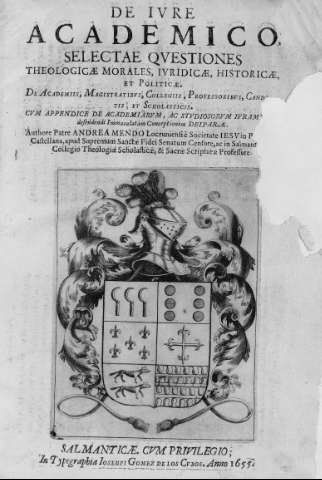 DE IVRE
ACADEMICO,
SELECTAE QVESTIONES
THEOLOGICÆ MORALES, IVRIDICÆ, HISTORICÆ,
ET POLITICÆ.
DE ACADEMIIS, MAGISTRATIBVS, COLLEGIIS, PROFESSORIBVS, CANDI
TIS, ET SCHOLASTICIS.
CVM APPENDICE DE ACADEMIARVM, AC STVDIOSORVM IVRAM
defendendi Immaculatam Conceptionem DEIPARÆ.
Authore Patre ANDREA MENDO Lucroniensi è Societate IESV in P
Castellana, apud Supremum Sanctæ Fidei Senatum Censore, ac in Salmant
Collegio Theologiæ Scholasticæ, & Sacræ Scripturæ Professore.
SALMANTICÆ. CVM PRIVILEGIO;
In Typographia IOSEPHI GOMEZ DE LOS CVBOS. Anno 1655.